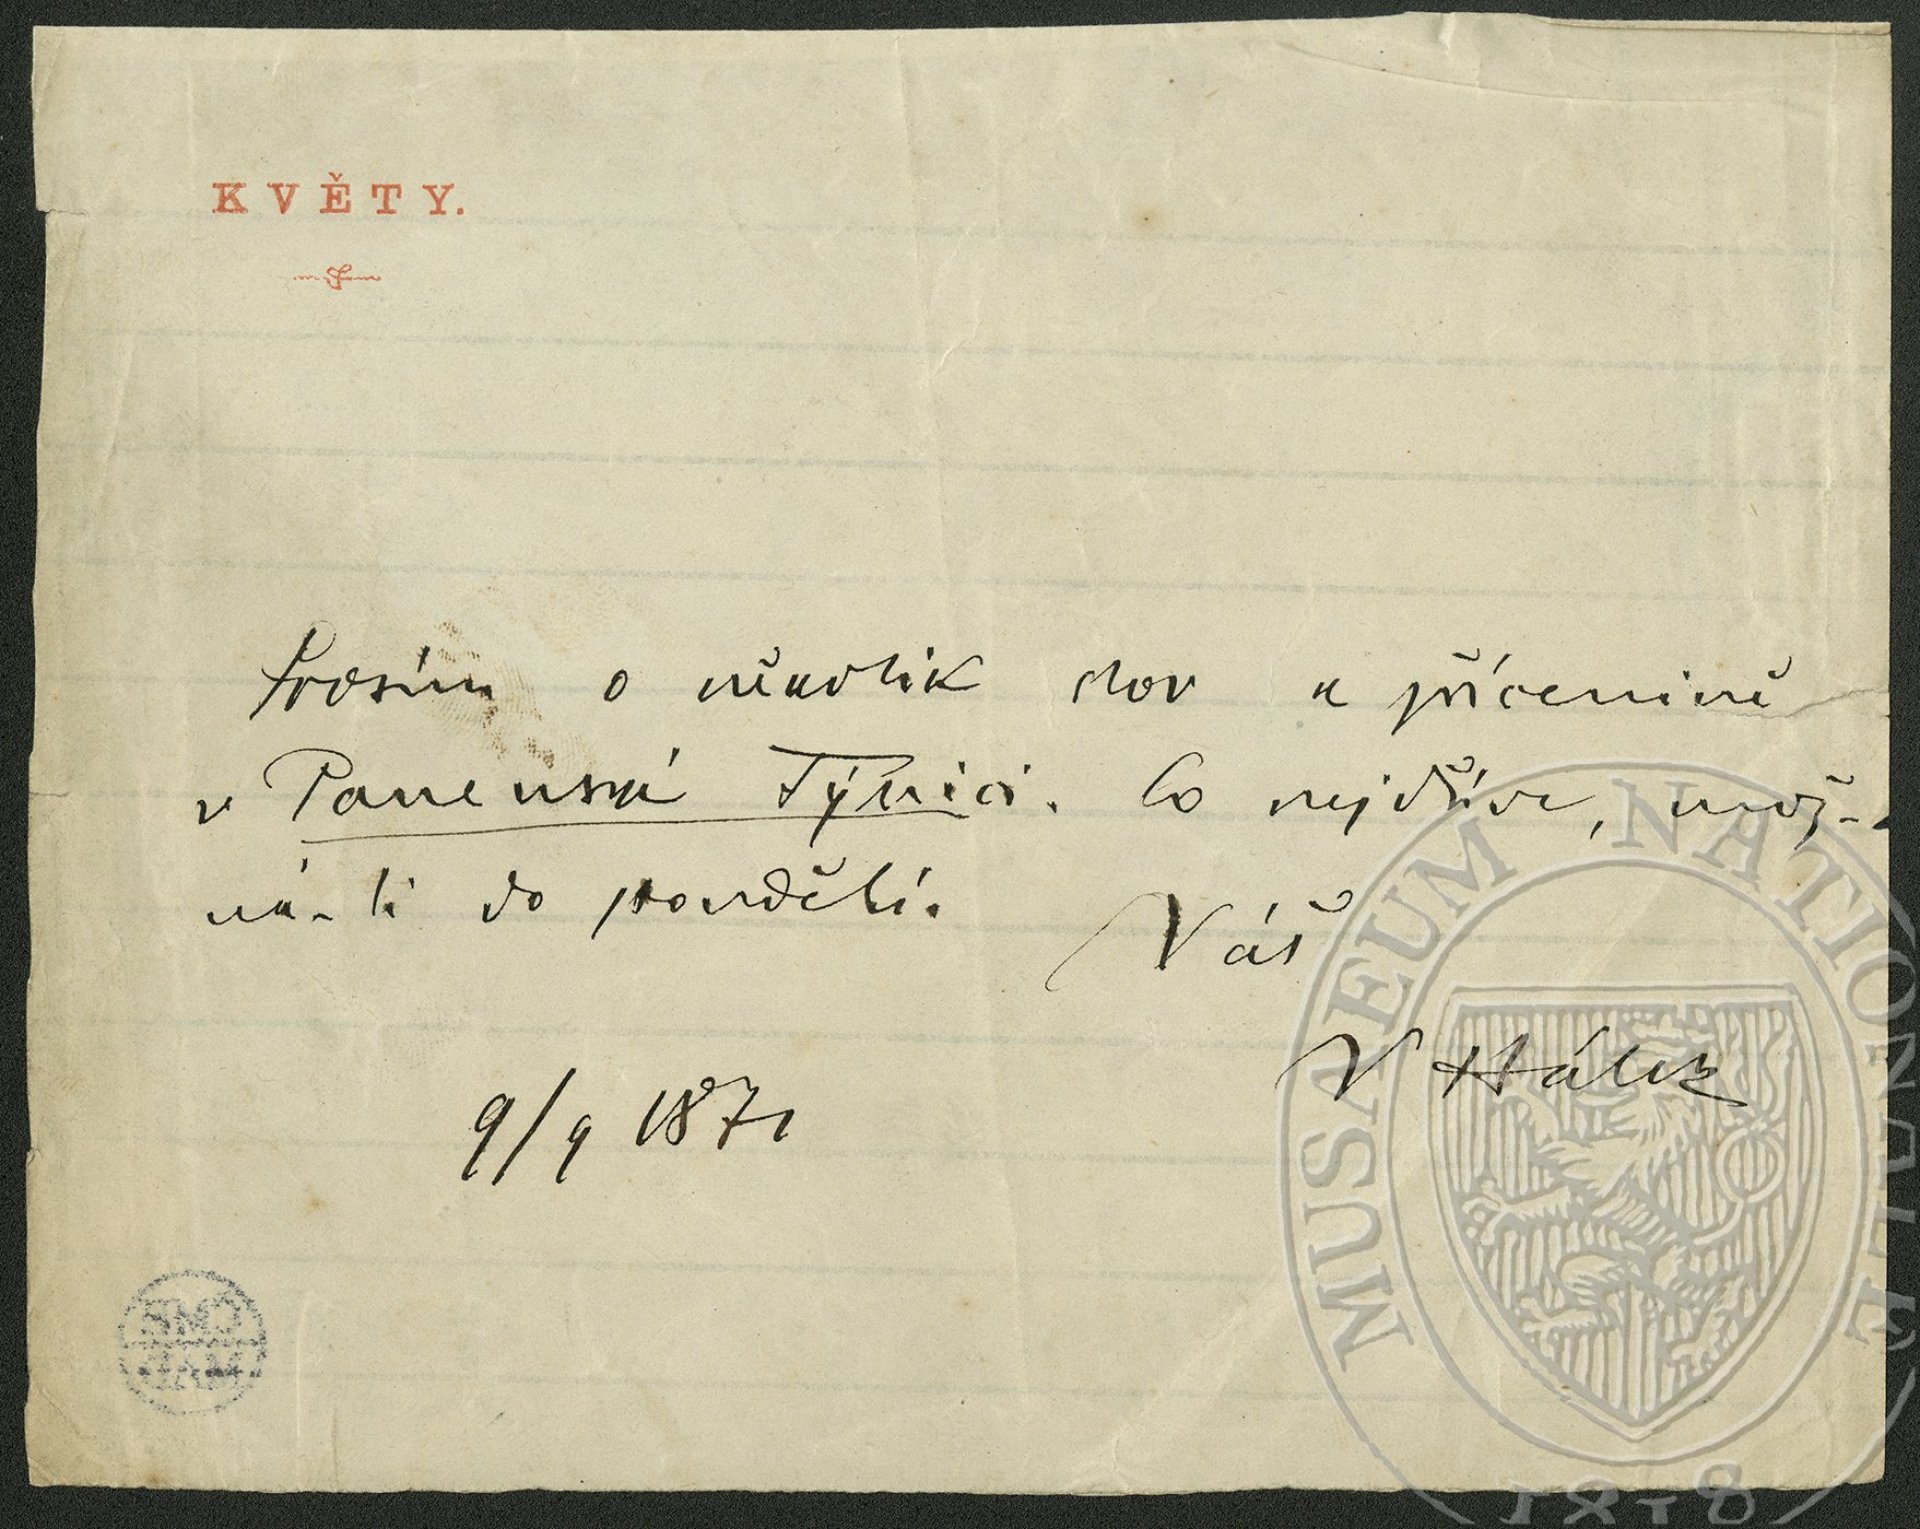 KVĚTY.
Prosím o několik slov k přícenině
v Panenské Týnici. Co nejdříve, mož-
ná-li do pondělí.
Váš
V Hálek
9/9 1871
MUSAEUM NATIONALE
1818